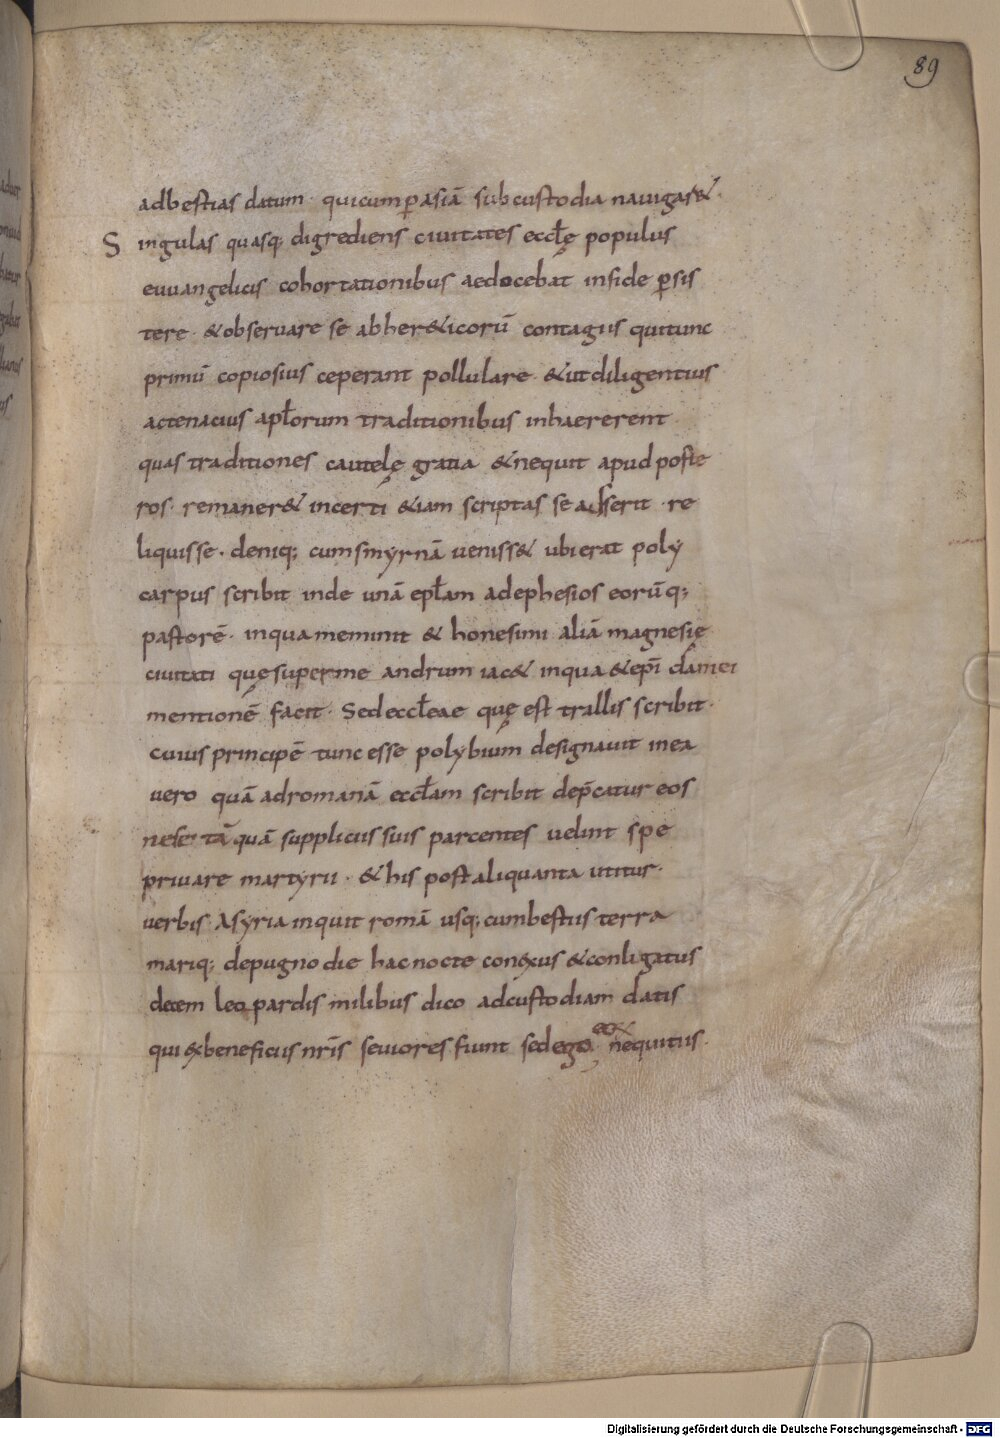 89
adbestias datum · quicum ꝑ asiā sub custodia nauigas&·
Singulas quasq; digrediens ciuitates eccƚę populus
euuangelicis cohortationibus aedocebat infide ꝑsis
tere · &obseruare se abher&icorū contagiis quitunc
primū copiosius ceperant pollulare · &utdiligentius
actenacius apƚorum traditionibus inhaererent
quas traditiones cautelę gratia &nequit apud poste
ros· remaner& incerti &iam scriptas se adserit · re
liquisse · deniq; cum smyrnā ueniss& ubi erat poly
carpus scribit inde unā epƚam adephesios eorūq;
pastorē · inqua meminit & honesimi aliā magnesię
ciuitati quęsuperme andrum iac& inqua &epī damei
mentionē facit · Sed eccƚeae quę est trallis scribit·
cuius principē tunc esse polybium designauit inea
uero quā adromanā eccƚam scribit dep̄catur eos
nese tā quā suppliciis suis parcentes uelint spe
priuare martyrii · &his post aliquanta utitur·
uerbis · Asyria inquit romā usq; cumbestiis terra
mariq; depugno die hac nocte conexus &conligatus
decem leopardis milibus dico adcustodiam datis
qui exbeneficiis nr̄is seuiores fiunt sed ego eoꝝ nequitiis·
Digitalisierung gefördert durch die Deutsche Forschungsgemeinschaft - DFG